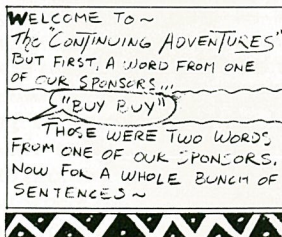 WELCOME TO~
The "CONTINUING ADVENTURES"
BUT FIRST, A WORD FROM ONE
OF OUR SPONSORS...
"BUY BUY"
THOSE WERE TWO WORDS
FROM ONE OF OUR SPONSORS.
NOW FOR A WHOLE BUNCH OF
SENTENCES~